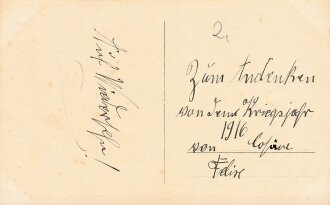 Auf Wiedersehn!
2.
Zum Andenken
von dem Kriegsjahr
1916
von